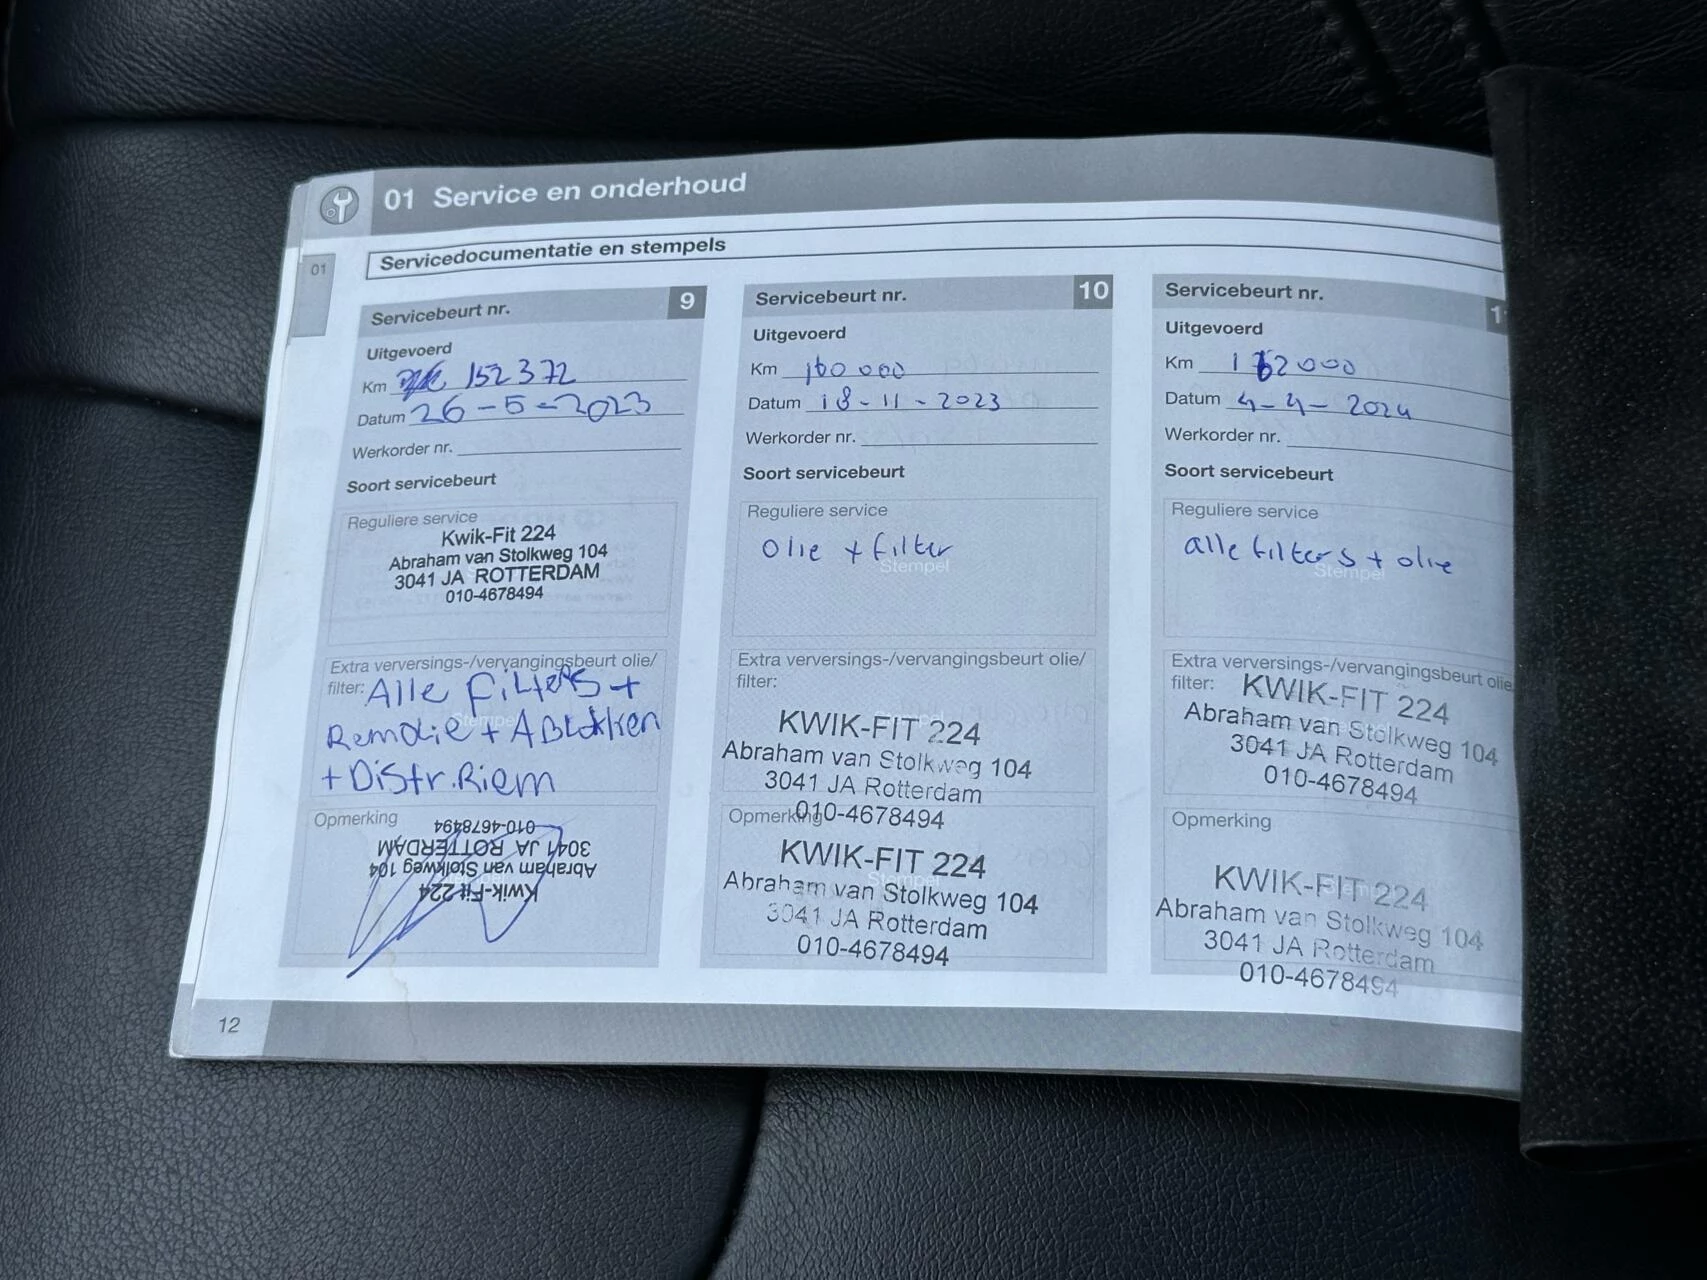 01 Service en onderhoud
01
Servicedocumentatie en stempels
Servicebeurt nr. 9
Uitgevoerd
Km 152372
Datum 26-5-2023
Werkorder nr.
Soort servicebeurt
Reguliere service
Kwik-Fit 224
Abraham van Stolkweg 104
3041 JA ROTTERDAM
010-4678494
Extra verversings-/vervangingsbeurt olie/
filter: Alle Filters +
Stempel
Remolie + ABlokken
+ Distr.Riem
Opmerking
Kwik-Fit 224
Abraham van Stolkweg 104
3041 JA ROTTERDAM
010-4678494
Servicebeurt nr. 10
Uitgevoerd
Km 160 000
Datum 18-11-2023
Werkorder nr.
Soort servicebeurt
Reguliere service
Olie + filter
Stempel
Extra verversings-/vervangingsbeurt olie/
filter:
KWIK-FIT 224
Abraham van Stolkweg 104
3041 JA Rotterdam
010-4678494
Opmerking
KWIK-FIT 224
Stempel
Abraham van Stolkweg 104
3041 JA Rotterdam
010-4678494
Servicebeurt nr.
Uitgevoerd
Km
Datum 4-4-2024
Werkorder nr.
Soort servicebeurt
Reguliere service
alle filters + olie
Stempel
Extra verversings-/vervangingsbeurt olie
filter:
KWIK-FIT 224
Abraham van Stolkweg 104
3041 JA Rotterdam
010-4678494
Opmerking
KWIK-FIT 224
Abraham van Stolkweg 104
3041 JA Rotterdam
010-4678494
12